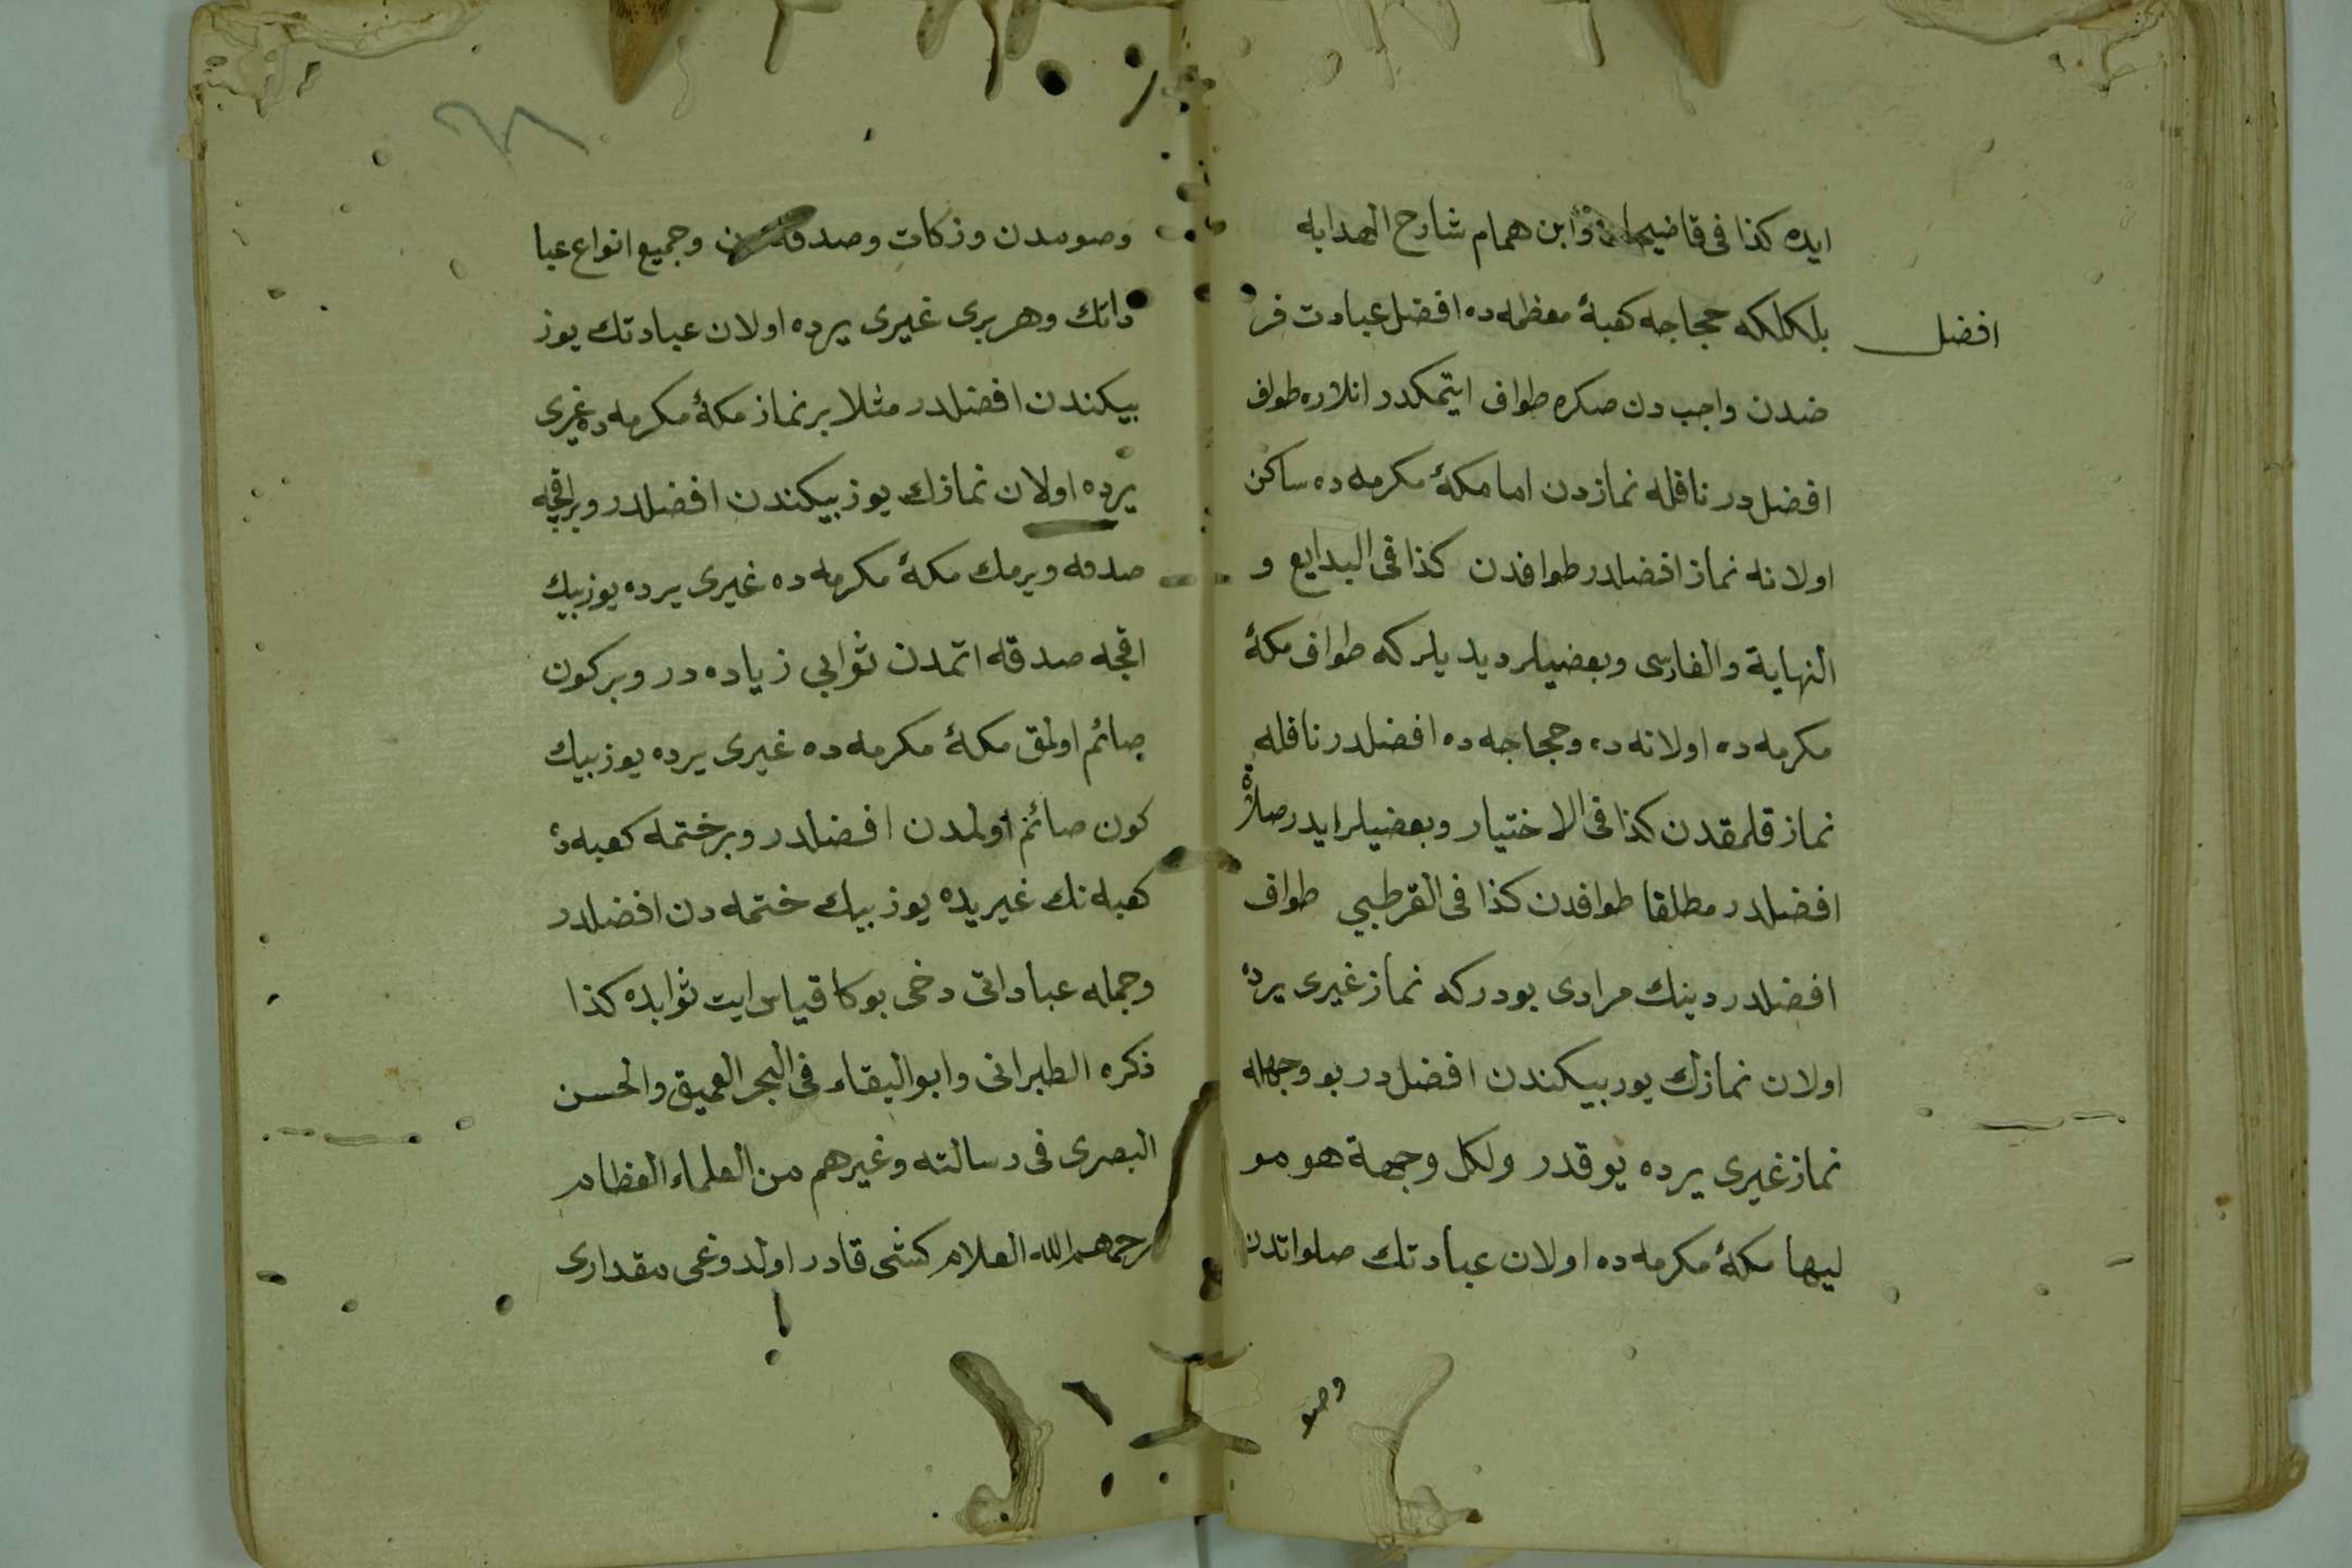 ايده كذا فى قاضيخان وابن همام شارح الهدايه
بلكلكه حجاجه كعبۀ معظمه ده افضل عبادت فر
افضل
ضدن واجب دن صكره طواف ايتمكدر انلاره طواف
افضل در نافله نمازدن اما مكۀ مكرمه ده ساكن
اولانه نماز افضلدر طوافدن كذا فى البدايع و
النهاية والفارسى وبعضيلر ديديلر كه طواف مكۀ
مكرمه ده اولانه ده وحجاجه ده افضلدر نافله
نماز قلمقدن كذا فى الاختيار وبعضيلر ايدر صلاة
افضلدر مطلقا طوافدن كذا فى القرطبي طواف
افضلدر دينك مرادى بودر كه نماز غيرى يرده
اولان نمازك يوز بيكندن افضل در بو وجهله
نماز غيرى يرده يوقدر ولكل وجهة هو مو
ليها مكۀ مكرمه ده اولان عبادتك صلواتدن
وصو
وصومدن وزكات وصدقه دن وجميع انواع عبا
داتك وهر برى غيرى يرده اولان عبادتك يوز
بيكندن افضلدر مثلا بر نماز مكۀ مكرمه ده غيرى
يرده اولان نمازك يوز بيكندن افضلدر وبر اقچه
صدقه ويرمك مكۀ مكرمه ده غيرى يرده يوز بيك
اقچه صدقه اتمدن ثوابي زياده در وبر كون
صائم اولمق مكۀ مكرمه ده غيرى يرده يوز بيك
كون صائم اولمدن افضلدر وبر ختمه كعبه ده
كعبه نك غيريده يوز بيك ختمه دن افضلدر
وجمله عباداتى دخى بوكا قياس ايت ثوابده كذا
ذكره الطبرانى وابو البقاء فى البحر العميق والحسن
البصرى فى رسالته وغيرهم من العلماء العظام
رحمهم الله العلام كشى قادر اولدوغى مقدارى